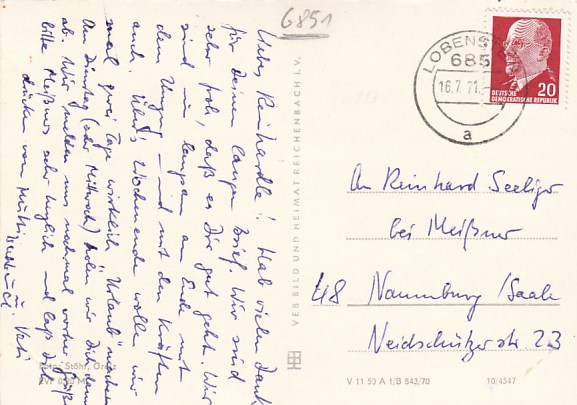 6851
Liebs Reinhardle! Hab vielen Dank
für Deinen langen Brief. Wir sind
sehr froh, daß es Dir gut geht. Wir
sind so langsam am Ende mit
dem Umzug – und mit den Kräften
auch. Übers Wochenende wollen wir
mal zwei Tage wirklich Urlaub machen
Am Dienstag (oder Mittwoch) holen wir Dich dann
ab. Wir melden uns nochmal vorher. Grüße
bitte Meißners sehr herzlich und laß Dich
drücken von Mutti
und Vati
LOBENSTEIN
685
16.7.71
a
20
DEUTSCHE
DEMOKRATISCHE REPUBLIK
VEB BILD UND HEIMAT REICHENBACH I. V.
An Reinhard Seeliger
bei Meißner
48 Naumburg/Saale
Neidschützer str. 23
Foto: Stöhr, Greiz
EVP 0,20 M
V 11 50 A 1/B 843/70
10/4547